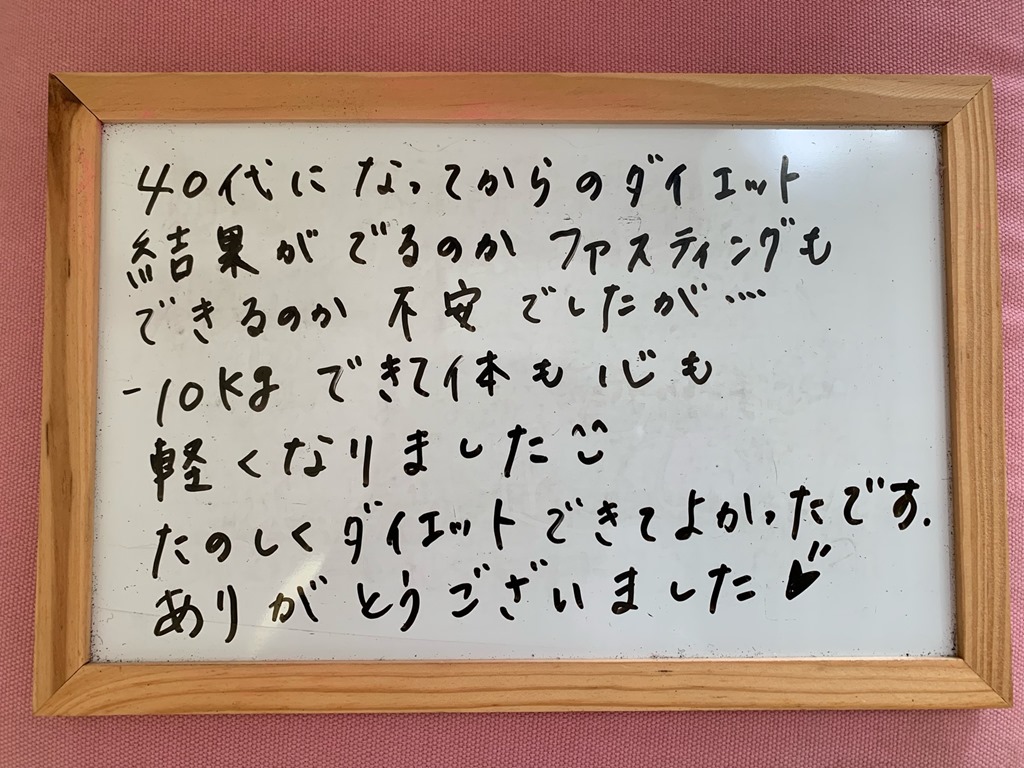 40代になってからのダイエット
結果がでるのか ファスティングも
できるのか 不安でしたが....
-10kgできて体も心も
軽くなりました^^
たのしくダイエットできてよかったです.
ありがとうございました♥